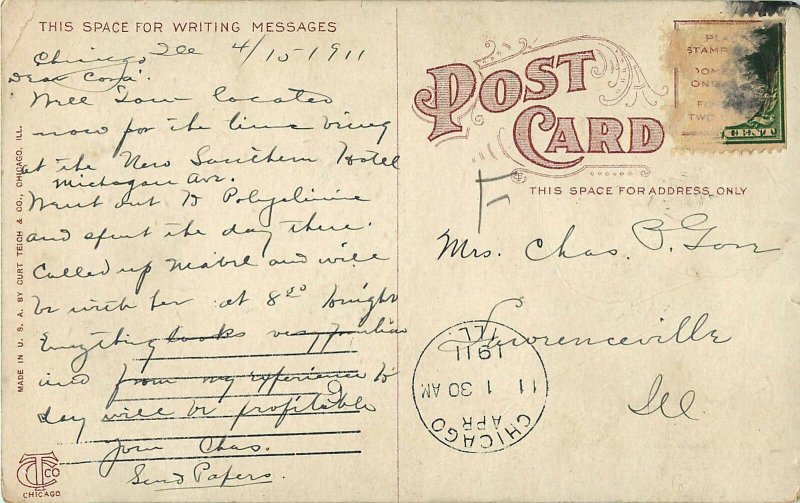 THIS SPACE FOR WRITING MESSAGES
Chicago Ill 4/15-1911
Dear Cora.
Well I am located
now for the time being
at the New Southern Hotel
Michagan Ave.
Went out to Polyclinic
and spent the day there.
Called up Mabel and will
be with her at 8 30 tonight
Everything looks very familiar
and from my experience to
day will be profitable
Your Chas.
Send Papers.
MADE IN U. S. A. BY CURT TEICH & CO., CHICAGO, ILL.
CT CO
CHICAGO
POST
CARD
THIS SPACE FOR ADDRESS ONLY
F
Mrs. Chas. B. Gore
Lawrenceville
Ill
CHICAGO
APR
11 1 30 AM
1911
ILL.
PLA
STAM
DOME
ON
FO
TWO
CENT